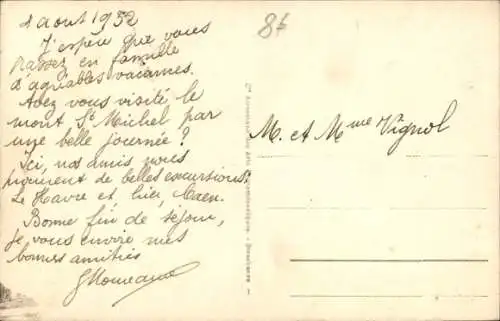 4 août 1952
J'espère que vous
passez en famille
d'agréables vacances.
Avez vous visité le
mont St Michel par
une belle journée ?
Ici, nos amis nous
procurent de belles excursions:
Le Havre et, hier, Caen.
Bonne fin de séjour,
je vous envoie mes
bonnes amitiés
8f
M. et Mme Vignol